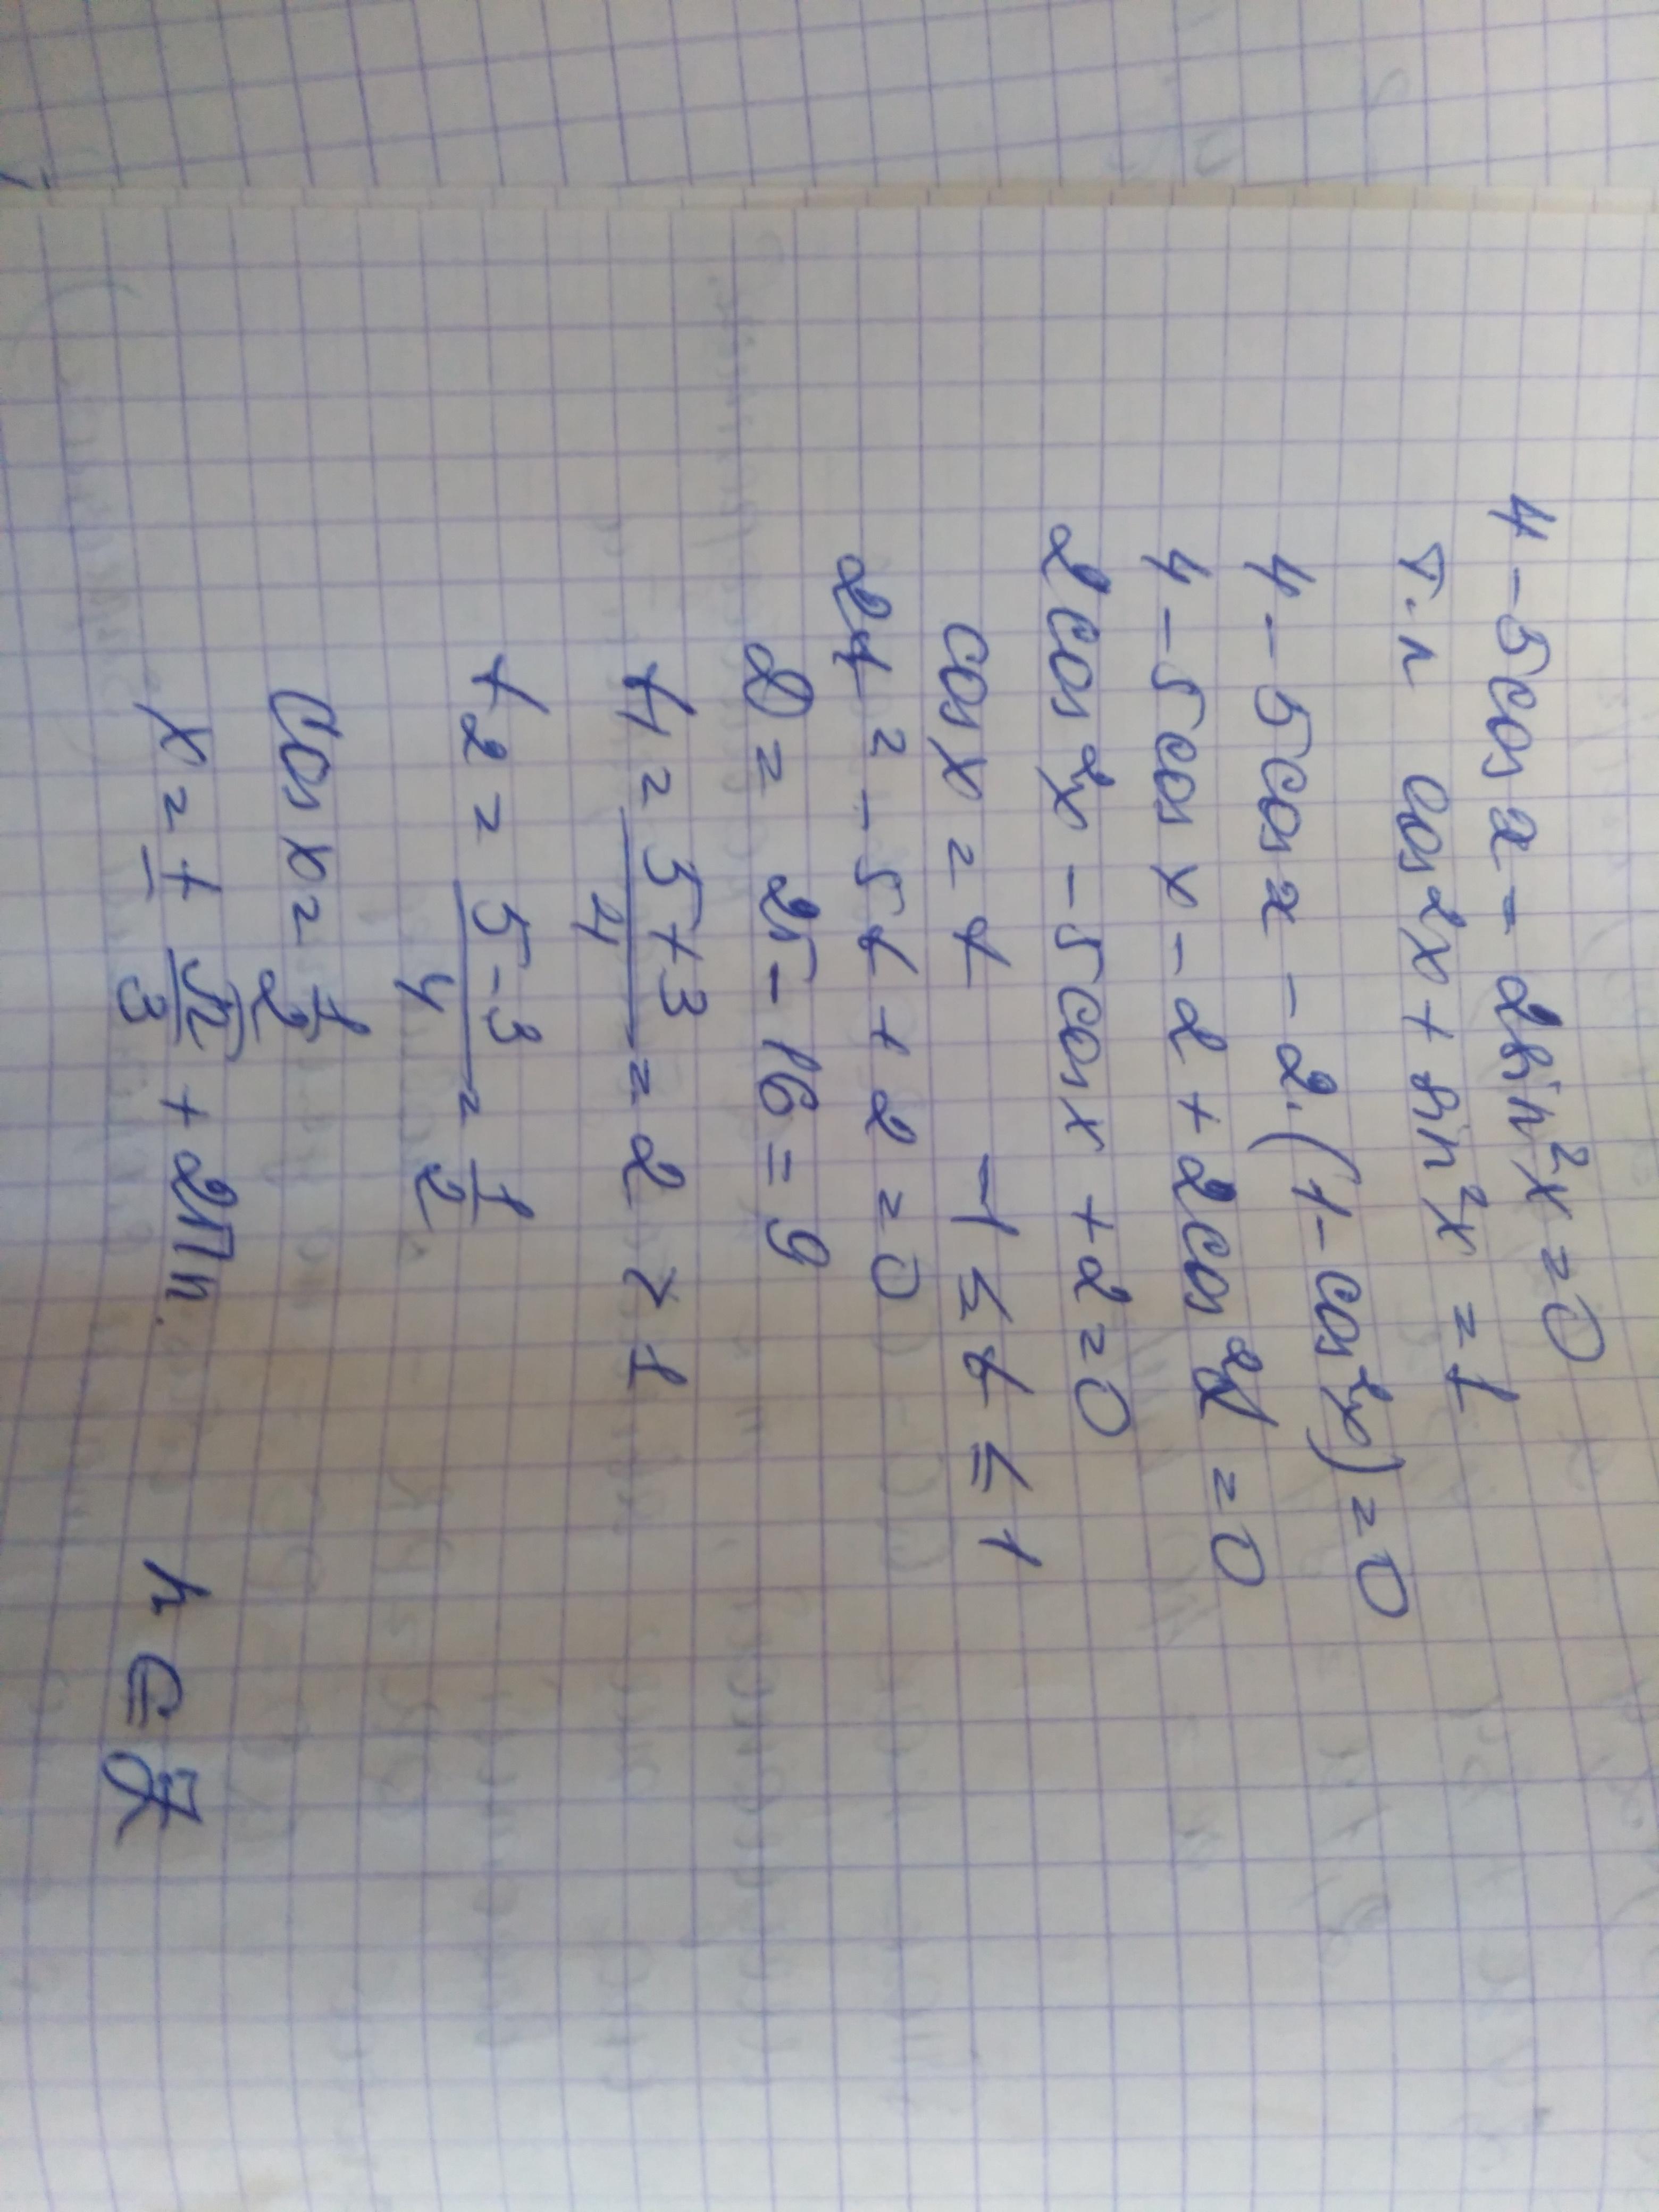 4 - 5cos x - 2sin²x = 0
т.к cos²x + sin²x = 1
4 - 5cos x - 2·(1 - cos²x) = 0
4 - 5cos x - 2 + 2cos²x = 0
2cos²x - 5cos x + 2 = 0
cos x = t -1 ≤ t ≤ 1
2t² - 5t + 2 = 0
D = 25 - 16 = 9
t₁ = (5+3)/4 = 2 > 1
t₂ = (5-3)/4 = 1/2
Cos x = 1/2
x = ± π/3 + 2Пn. n ∈ Z